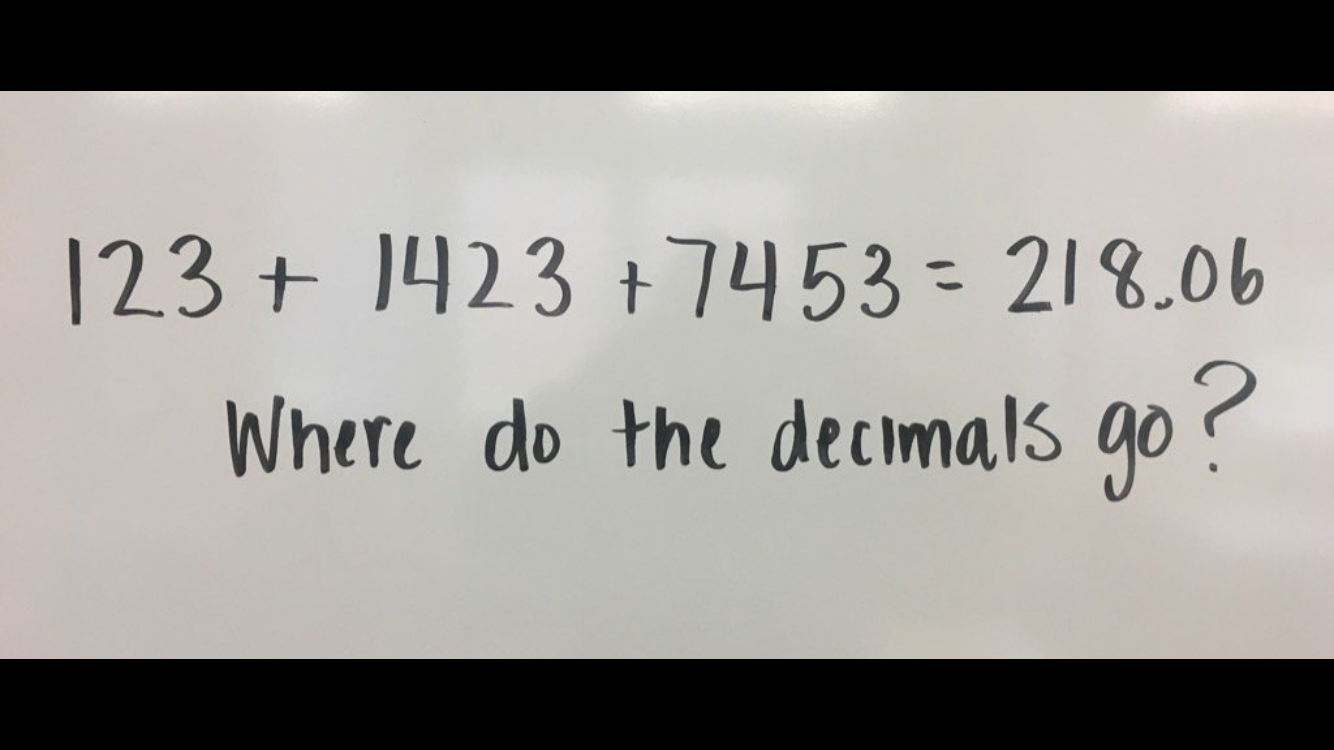 123 + 1423 + 7453 = 218.06
Where do the decimals go?